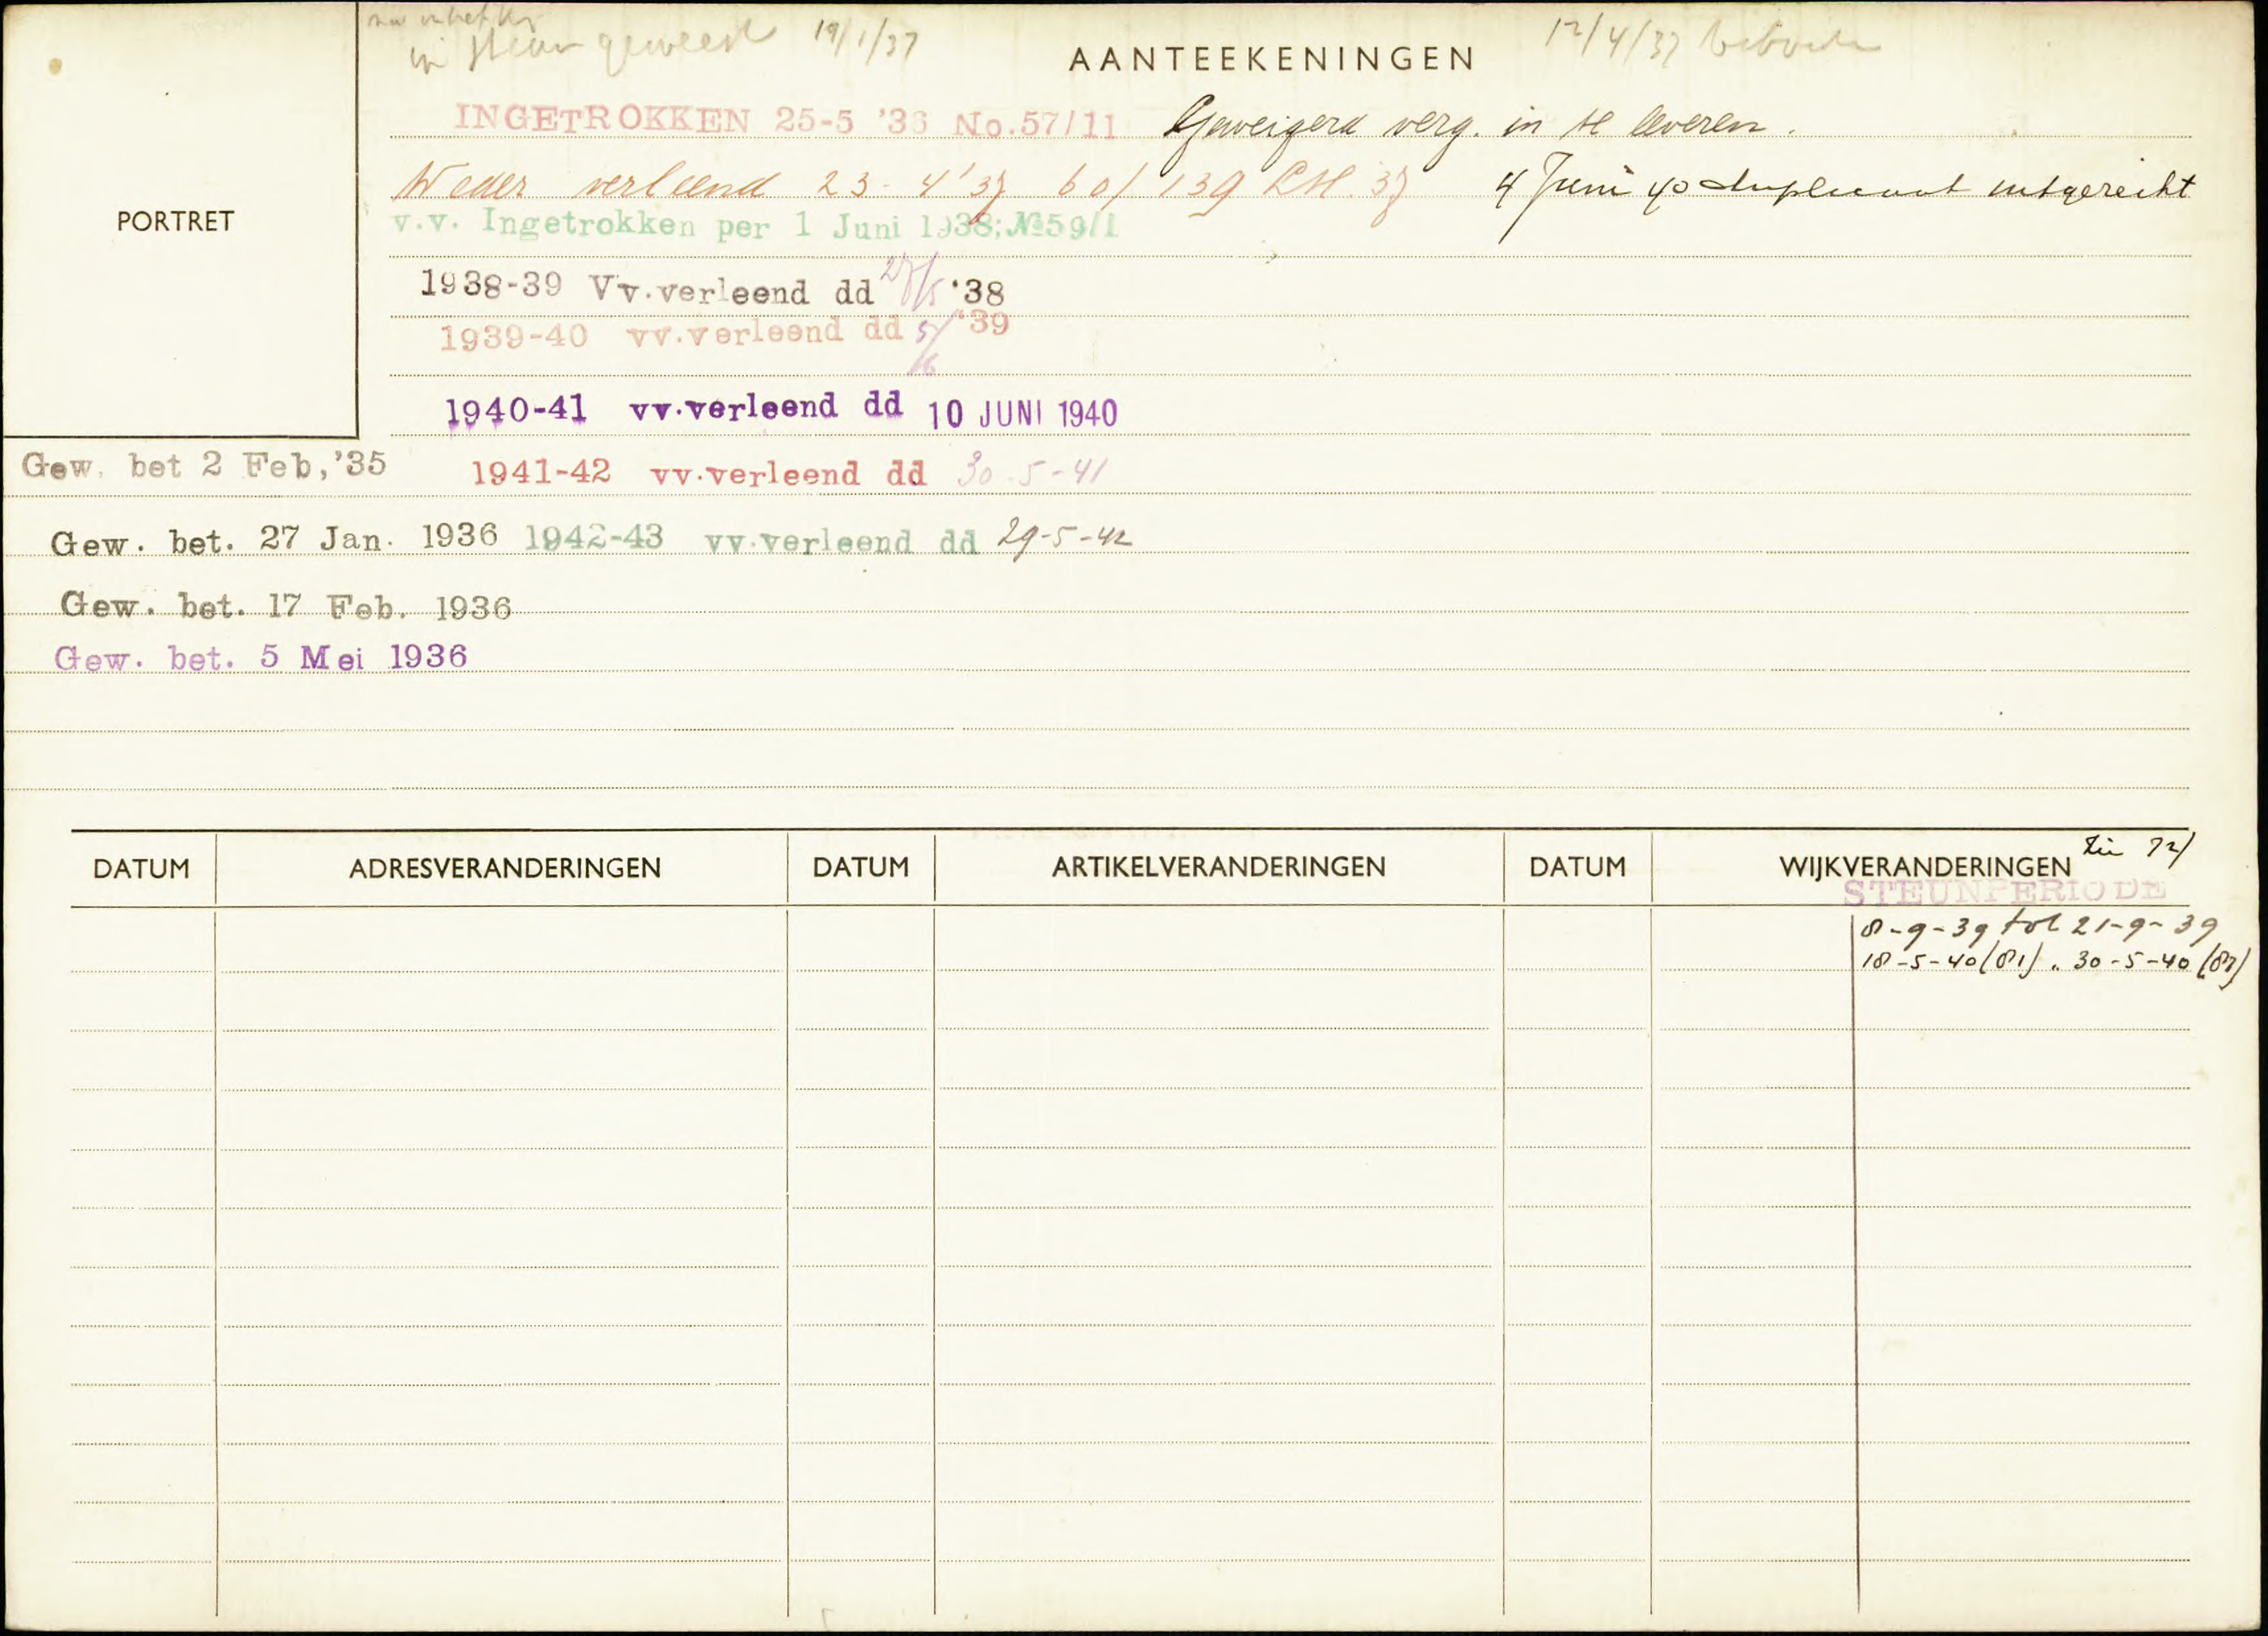 in steun geweest 19/1/37
12/4/37
AANTEEKENINGEN
INGETROKKEN 25-5 '36 No.57/11 Geweigerd verg. in te leveren.
Weder verleend 23-4'37 60/139 37 4 Juni 40 duplicaat uitgereikt
PORTRET
v.v. Ingetrokken per 1 Juni 1938; №59/1
1938-39 Vv.verleend dd 27/5 '38
1939-40 vv.verleend dd 5/6 '39
1940-41 vv.verleend dd 10 JUNI 1940
Gew. bet 2 Feb,'35 1941-42 vv.verleend dd 30-5-41
Gew. bet. 27 Jan. 1936 1942-43 vv.verleend dd 29-5-42
Gew. bet. 17 Feb. 1936
Gew. bet. 5 Mei 1936
DATUM ADRESVERANDERINGEN DATUM ARTIKELVERANDERINGEN DATUM WIJKVERANDERINGEN
STEUNPERIODE
8-9-39 tot 21-9-39
18-5-40 (81) " 30-5-40 (83)